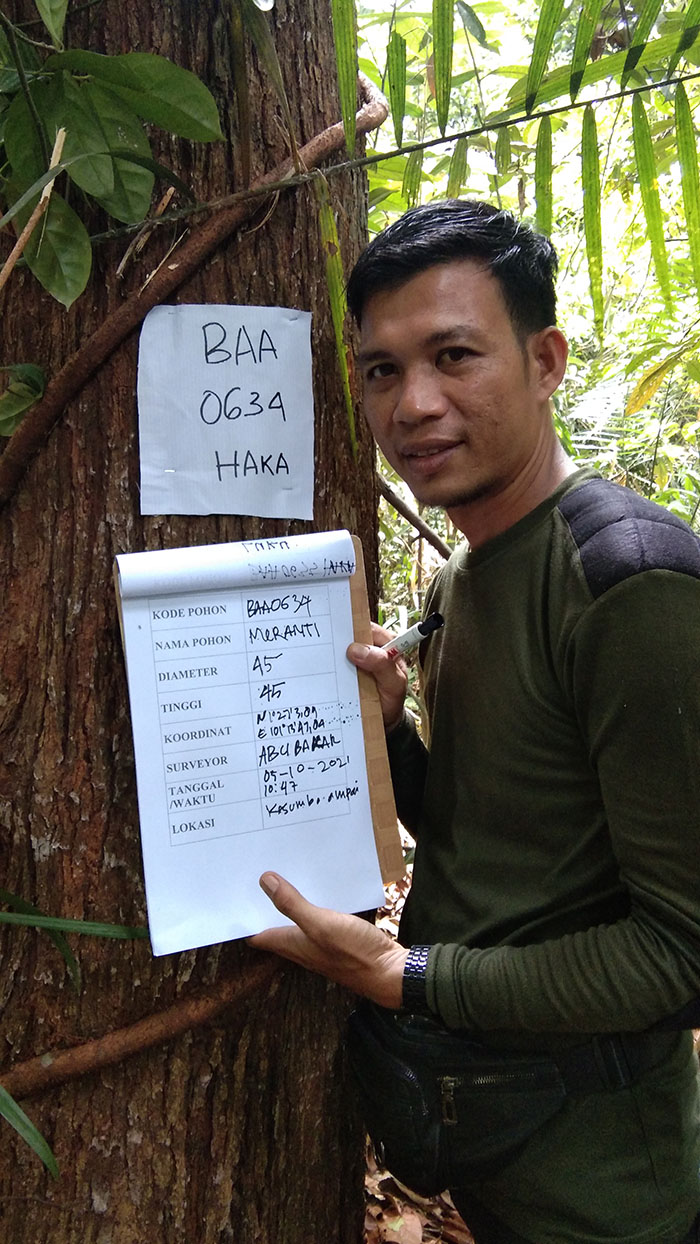 BAA
0634
HAKA
HAKA
KODE POHON BAA0634
NAMA POHON MERANTI
DIAMETER 45
TINGGI 45
KOORDINAT
SURVEYOR ABU BAKAR
TANGGAL 05-10-2021
/WAKTU 10:47
LOKASI Kasumbo ampai